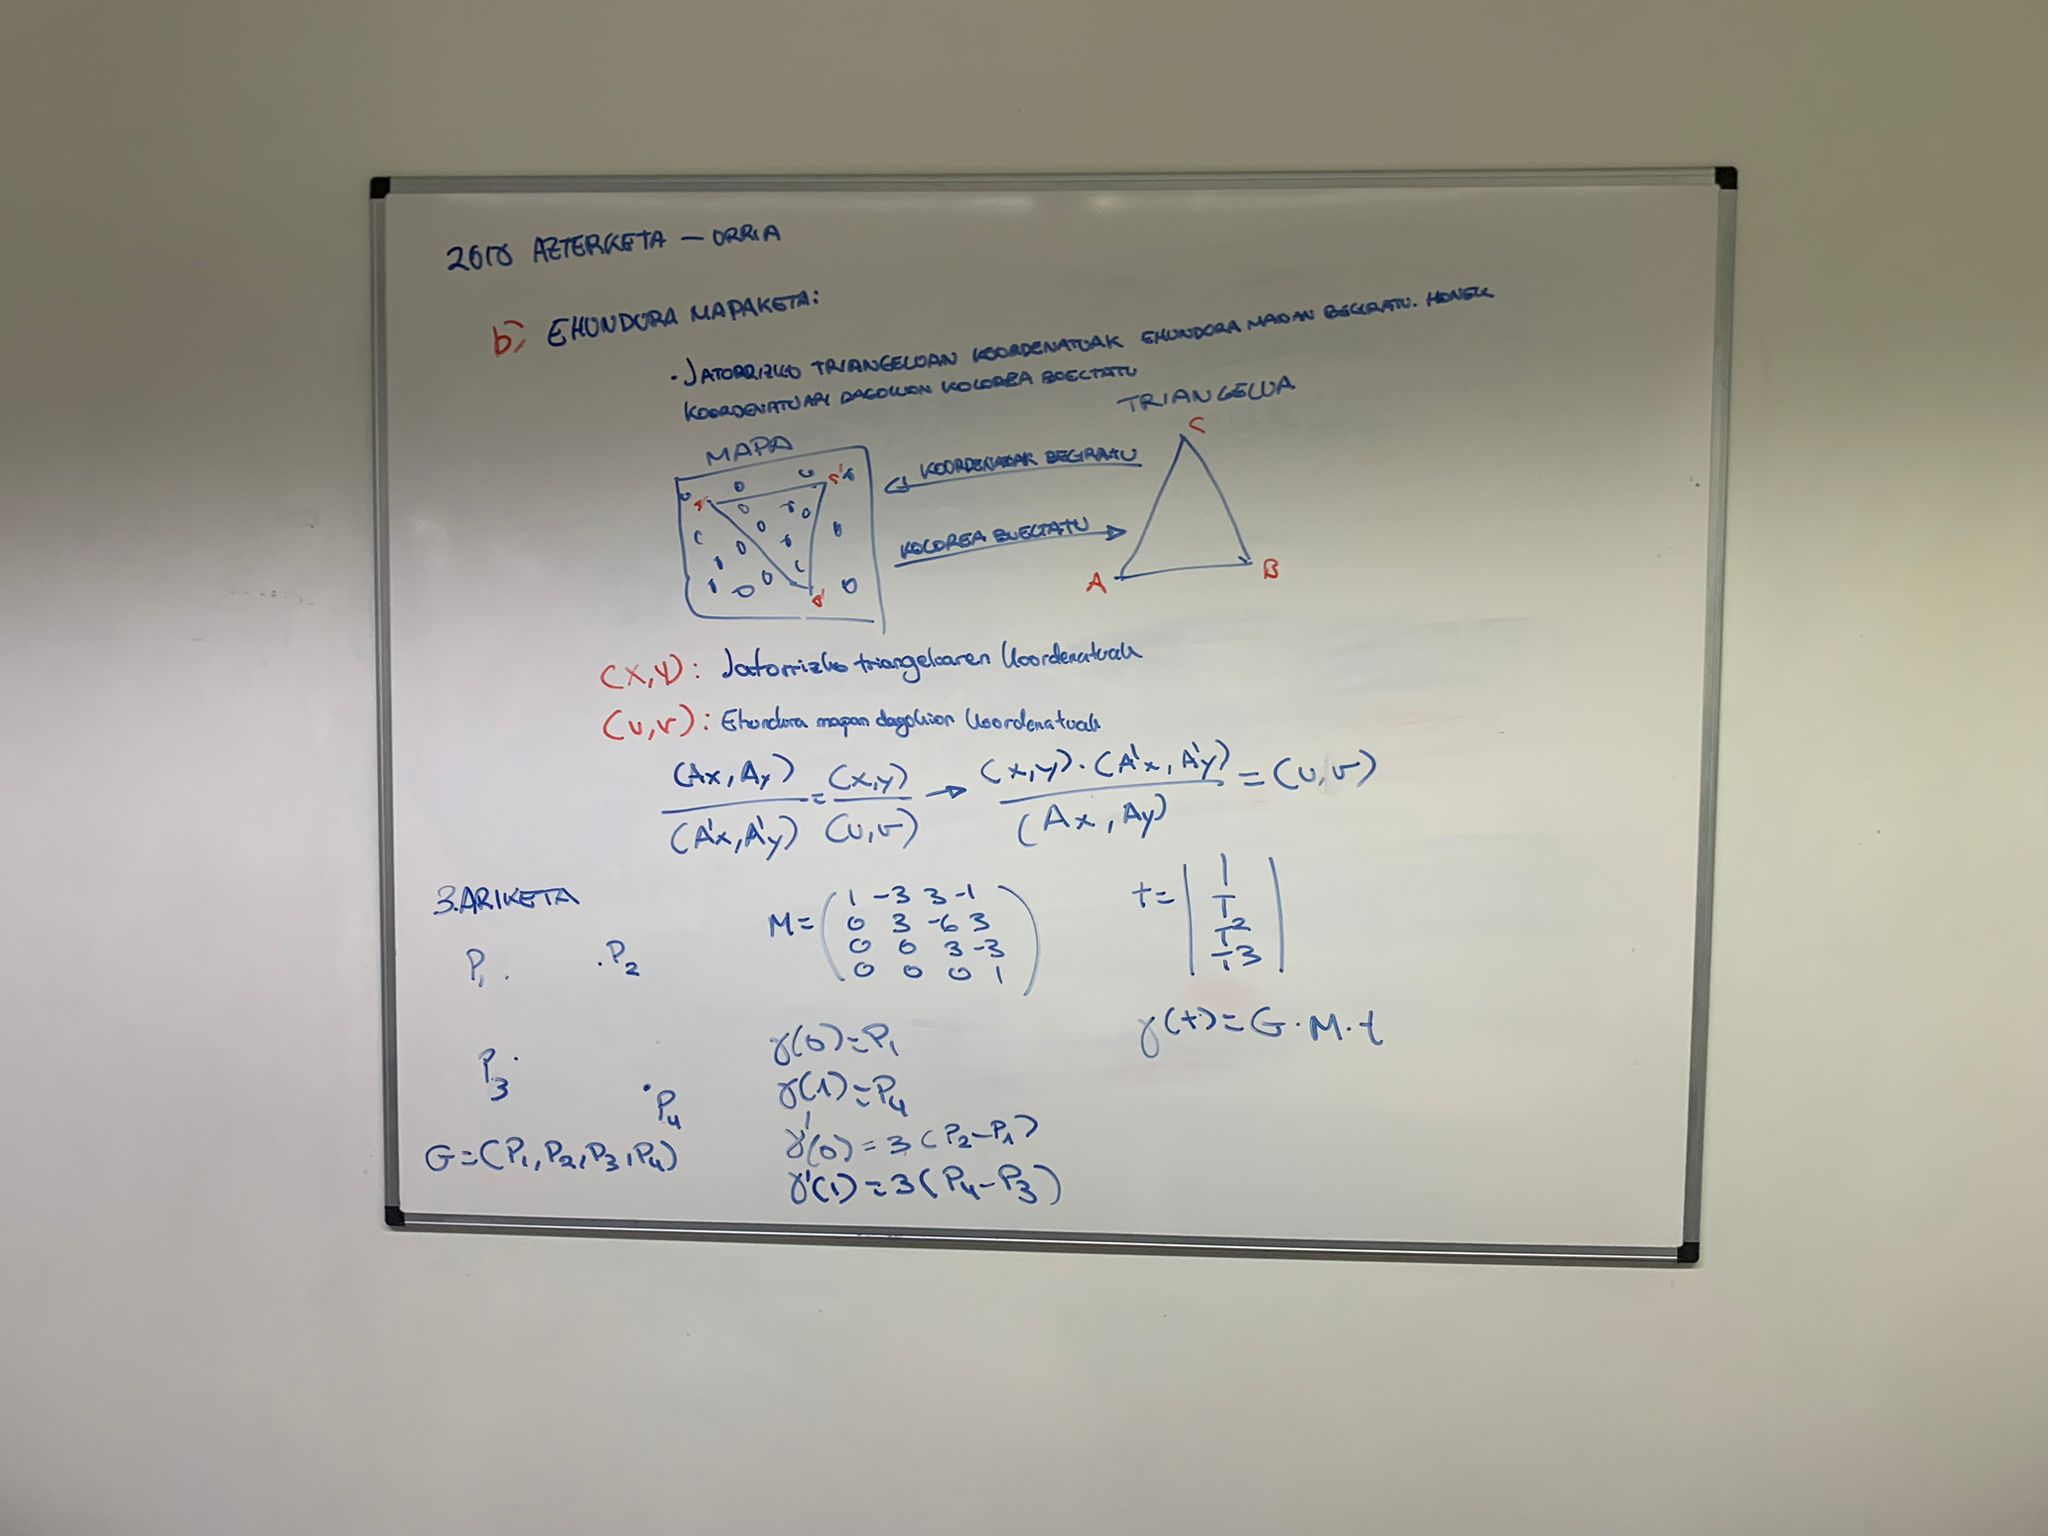 2018 AZTERKETA – ORRIA
b) EHUNDURA MAPAKETA:
• JATORRIZKO TRIANGELUAN KOORDENATUAK EHUNDURA MAPAN BEGIRATU. HONEK
KOORDENATUARI DAGOKION KOLOREA BUELTATU
MAPA
TRIANGELUA
A' C'
B'
KOORDENADAK BEGIRATU
KOLOREA BUELTATU
C
A B
(x,y): Jatorrizko triangeluaren koordenatuak
(u,v): Ehundura mapan dagokion koordenatuak
(Ax, Ay) / (A'x, A'y) = (x,y) / (u,v) → (x,y)·(A'x, A'y) / (Ax, Ay) = (u,v)
3.ARIKETA
P1 . . P2
P3 . . P4
G=(P1,P2,P3,P4)
M= ( 1 -3 3 -1
0 3 -6 3
0 0 3 -3
0 0 0 1 )
γ(0)=P1
γ(1)=P4
γ'(0)=3(P2-P1)
γ'(1)=3(P4-P3)
t= | 1
T
T2
T3 |
γ(t)=G·M·t